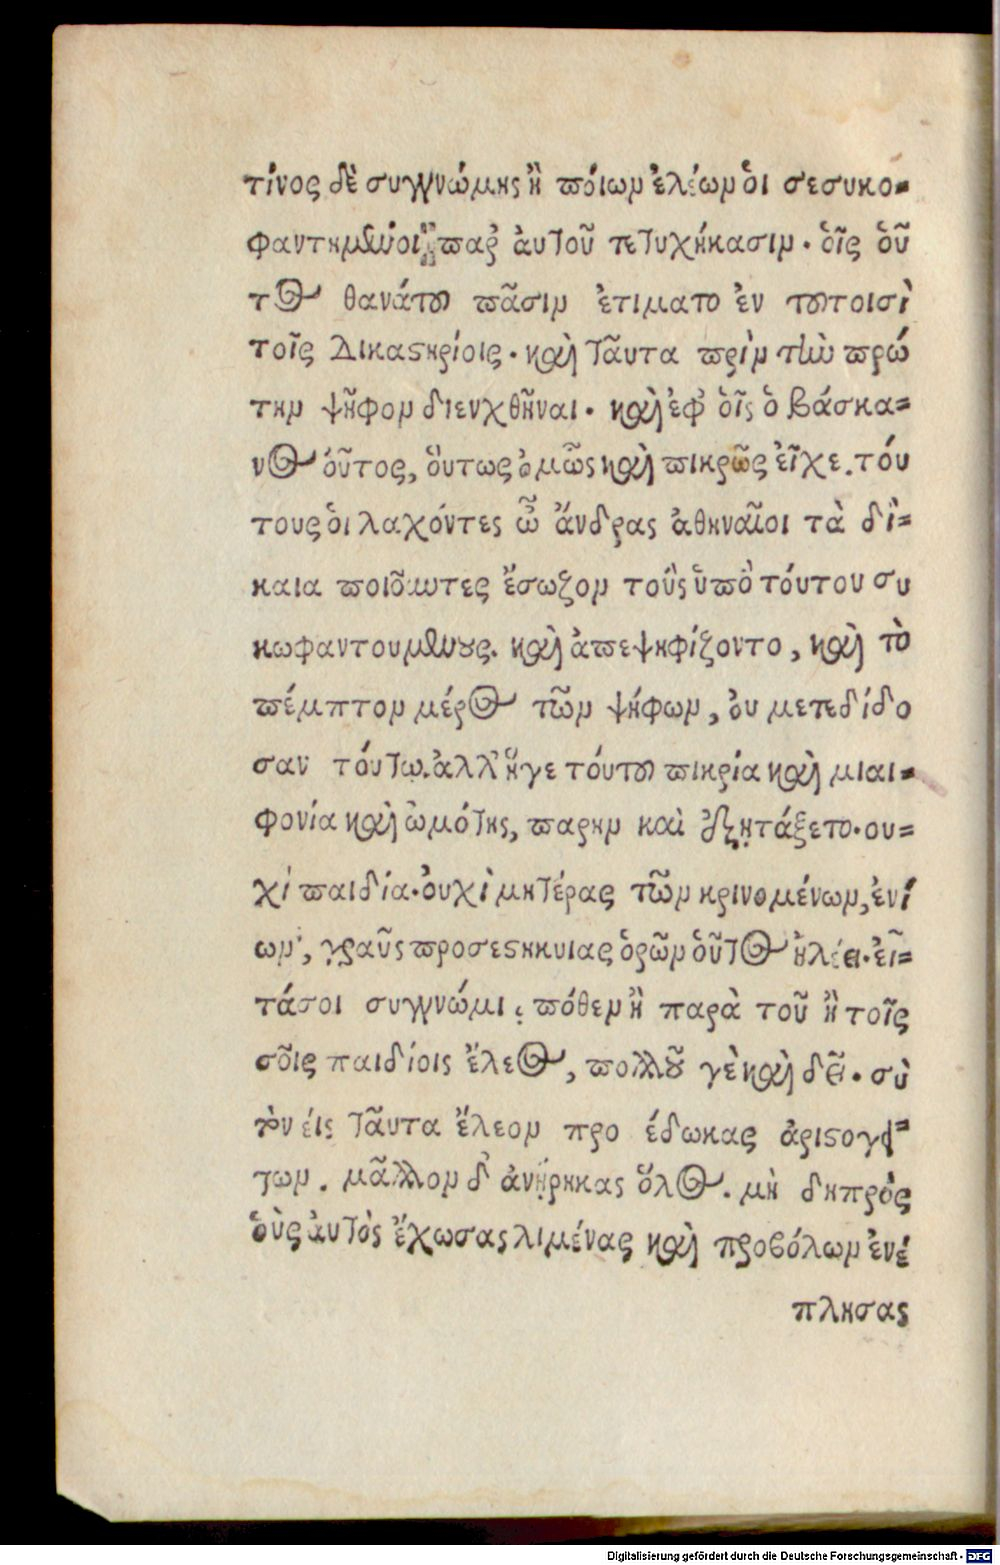 τίνος δὲ συγγνώμης ἢ ποίων ἐλέων ὁι σεσυκο=
φαντημένοι παρ ἀυτοῦ τετυχήκασιν. ὁῖς ὁῦ
τος θανάτου πᾶσιν ἐτιματο ἐν τουτοισὶ
τοῖς Δικαστηρίοις. καὶ ταῦτα πρὶν τὴν πρώ
την ψῆφον διενχθῆναι. καὶ ἐφ ὁῖς ὁ βάσκα=
νος όῦτος, ὅυτως ὀμῶς καὶ πικρῶς ἐῖχε. τόυ
τους ὁι λαχόντες ὦ ἄνδρας ἀθηναῖοι τὰ δὶ=
καια ποιοῦντες ἔσωζον τοὺς ὑπὸ τόυτου συ
κωφαντουμένους. καὶ ἀπεψηφίζοντο, καὶ τὸ
πέμπτον μέρος τῶν ψήφων, ὀυ μετεδίδο
σαν τόυτω. ἀλλ ἥγε τόυτου πικρία καὶ μιαι=
φονία καὶ ὠμότης, παρην καὶ ἐξητάξετο. ου=
χὶ παιδία. ὀυχὶ μητέρας τῶν κρινομένων, ἐνί
ων, γραῦς προσεστηκυιας ὁρῶν ὁῦτος ἠλέει. ἐῖ=
τάσοι συγγνώμι; πόθεν ἢ παρὰ τοῦ ἢ τοῖς
σοῖς παιδίοις ἔλεος, πολλοῦ γὲ καὶ δεῖ. σὺ
τὸν έις ταῦτα ἔλεον προ έδωκας ἀριστογεί=
των. μᾶλλον δ ἀνήρηκας ὅλος. μὴ δηπρὸς
ὁὺς ἀυτὸς ἔχωσας λιμένας καὶ προβόλων ἐνέ
πλησας
Digitalisierung gefördert durch die Deutsche Forschungsgemeinschaft - DFG